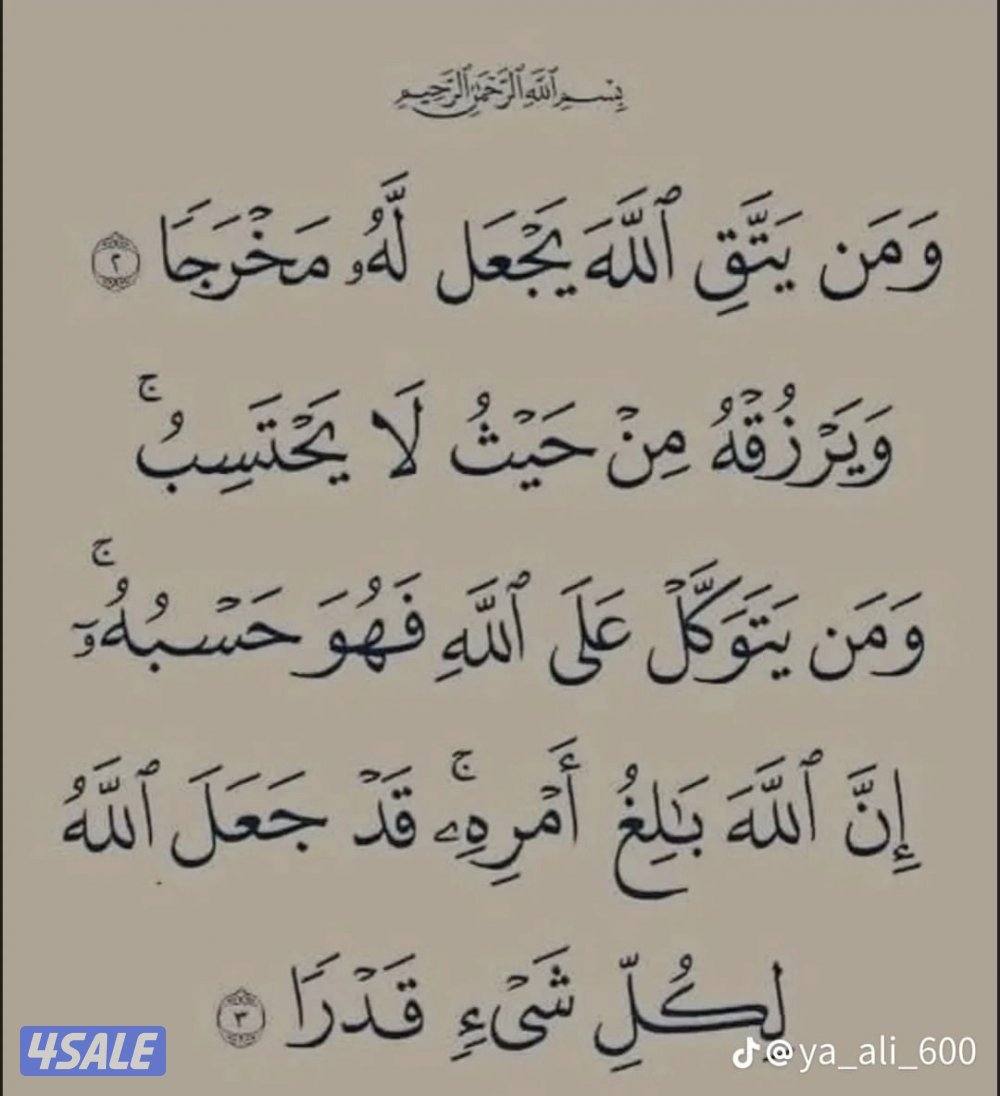 بِسْمِ ٱللَّهِ ٱلرَّحْمَٰنِ ٱلرَّحِيمِ
وَمَن يَتَّقِ ٱللَّهَ يَجْعَل لَّهُۥ مَخْرَجًا ٢
وَيَرْزُقْهُ مِنْ حَيْثُ لَا يَحْتَسِبُ ۚ
وَمَن يَتَوَكَّلْ عَلَى ٱللَّهِ فَهُوَ حَسْبُهُۥٓ ۚ
إِنَّ ٱللَّهَ بَٰلِغُ أَمْرِهِۦ ۚ قَدْ جَعَلَ ٱللَّهُ
لِكُلِّ شَىْءٍ قَدْرًا ٣
4SALE
@ya_ali_600